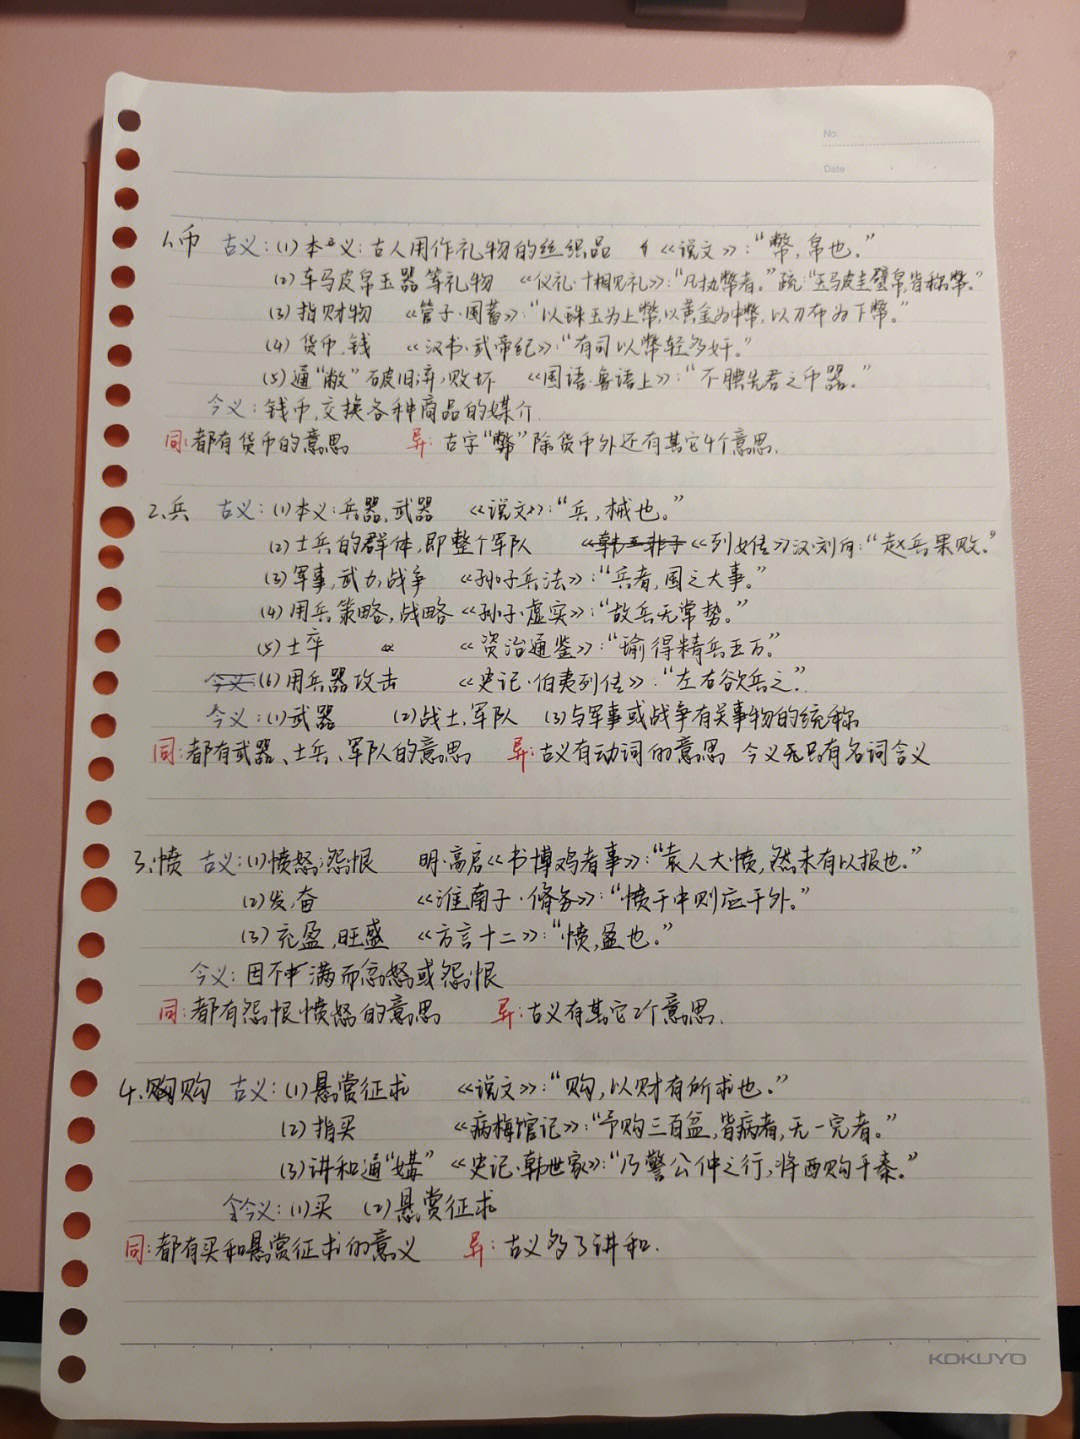 No.
Date
1.币 古义:(1)本义:古人用作礼物的丝织品 《说文》:“幣,帛也。”
(2)车马皮帛玉器等礼物 《仪礼·士相见礼》:“凡执幣者。”疏:“玉马皮圭璧帛,皆称幣。”
(3)指财物 《管子·国蓄》:“以珠玉为上幣,以黄金为中幣,以刀布为下幣。”
(4)货币,钱 《汉书·武帝纪》:“有司以幣轻多奸。”
(5)通“敝”破旧弃,败坏 《国语·鲁语上》:“不腆先君之币器。”
今义:钱币,交换各种商品的媒介
同:都有货币的意思 异:古字“幣”除货币外还有其它4个意思.
2.兵 古义:(1)本义:兵器,武器 《说文》:“兵,械也。”
(2)士兵的群体,即整个军队 《列女传》汉·刘向:“赵兵果败。”
(3)军事,武力,战争 《孙子兵法》:“兵者,国之大事。”
(4)用兵策略,战略《孙子·虚实》:“故兵无常势。”
(5)士卒 《资治通鉴》:“瑜得精兵五万。”
(6)用兵器攻击 《史记·伯夷列传》:“左右欲兵之”.
今义:(1)武器 (2)战士,军队 (3)与军事或战争有关事物的统称
同:都有武器、士兵、军队的意思 异:古义有动词的意思 今义无只有名词含义
3.愤 古义:(1)愤怒;怨恨 明·高启《书博鸡者事》:“袁人大愤,然未有以报也。”
(2)发,奋 《淮南子·脩务》:“愤于中则应于外。”
(3)充盈,旺盛 《方言十二》:“愤,盈也。”
今义:因不满而忿怒或怨恨
同:都有怨恨愤怒的意思 异:古义有其它2个意思.
4.购 古义:(1)悬赏征求 《说文》:“购,以财有所求也。”
(2)指买 《病梅馆记》:“予购三百盆,皆病者,无一完者。”
(3)讲和通“媾” 《史记·韩世家》:“乃警公仲之行,将西购于秦。”
今义:(1)买 (2)悬赏征求
同:都有买和悬赏征求的意义 异:古义多了讲和.
KOKUYO